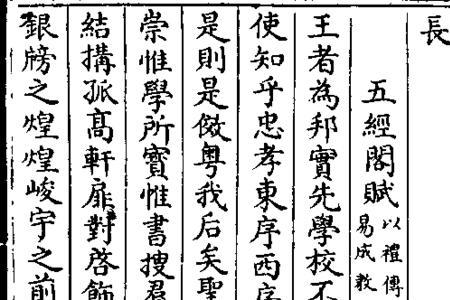 長
五經閣賦以禮傳
易成教
王者為邦實先學校不
使知乎忠孝東序西序
是則是傚粵我后矣聖
崇惟學所寶惟書搜君
結搆孤高軒扉對啓飾
銀牓之煌煌峻宇之前